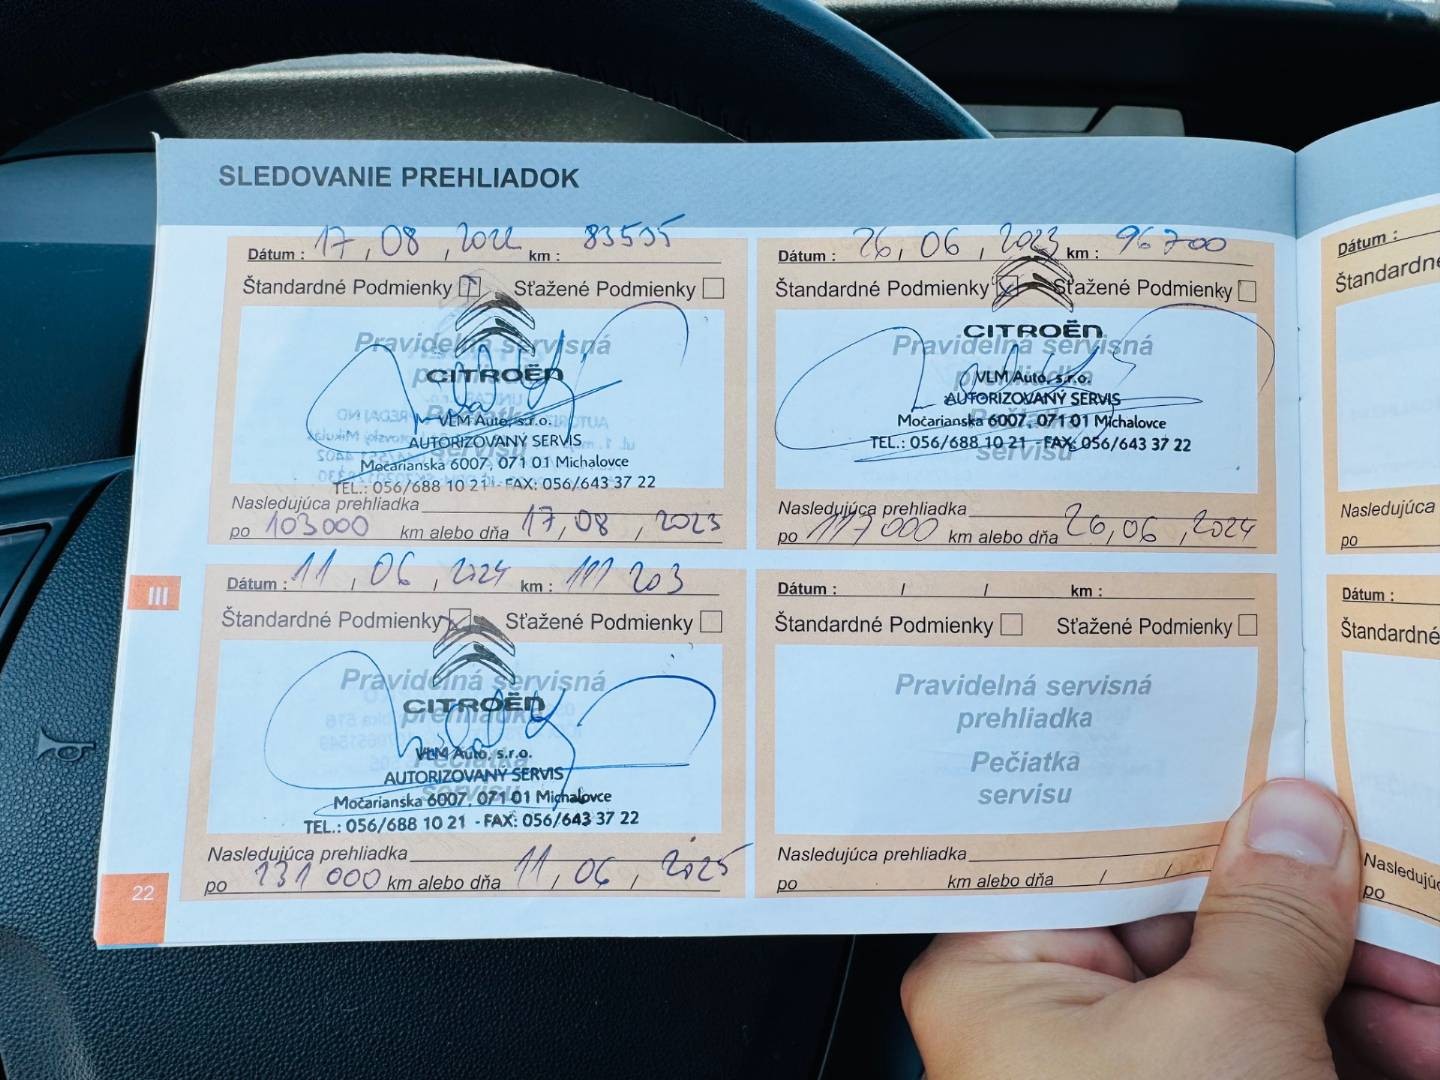 SLEDOVANIE PREHLIADOK
Dátum : 17 , 08 , 2022 km : 83535
Štandardné Podmienky Sťažené Podmienky
Pravidelná servisná
CITROËN
VLM Auto, s.r.o.
AUTORIZOVANÝ SERVIS
Močarianska 6007, 071 01 Michalovce
TEL.: 056/688 10 21 - FAX: 056/643 37 22
Nasledujúca prehliadka
po 103000 km alebo dňa 17, 08 , 2023
Dátum : 26, 06 , 2023 km : 96700
Štandardné Podmienky Sťažené Podmienky
Pravidelná servisná
prehliadka
CITROËN
VLM Auto, s.r.o.
AUTORIZOVANÝ SERVIS
Močarianska 6007, 071 01 Michalovce
TEL.: 056/688 10 21 - FAX: 056/643 37 22
servisu
Nasledujúca prehliadka
po 117000 km alebo dňa 26, 06 , 2024
Dátum : 11 , 06 , 2024 km : 111 203
Štandardné Podmienky Sťažené Podmienky
Pravidelná servisná
prehliadka
CITROËN
VLM Auto, s.r.o.
AUTORIZOVANÝ SERVIS
Močarianska 6007, 071 01 Michalovce
TEL.: 056/688 10 21 - FAX: 056/643 37 22
Nasledujúca prehliadka
po 131 000 km alebo dňa 11 / 06 , 2025
Dátum : / / km :
Štandardné Podmienky Sťažené Podmienky
Pravidelná servisná
prehliadka
Pečiatka
servisu
Nasledujúca prehliadka
po km alebo dňa / /
III
22
Dátum :
Štandardn
Nasledujúca
po
Dátum :
Štandardné
Nasledujú
po